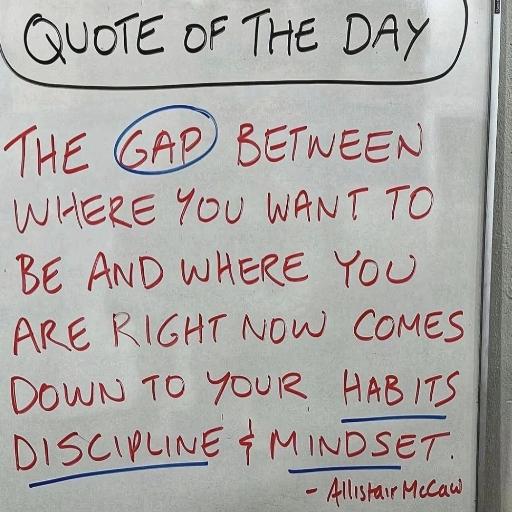 QUOTE OF THE DAY
THE GAP BETWEEN
WHERE YOU WANT TO
BE AND WHERE YOU
ARE RIGHT NOW COMES
DOWN TO YOUR HABITS
DISCIPLINE & MINDSET.
- Allistair McCaw